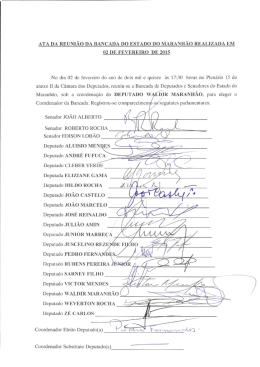 ATA DA REUNIÃO DA BANCADA DO ESTADO DO MARANHÃO REALIZADA EM
02 DE FEVEREIRO DE 2015
No dia 02 de fevereiro do ano de dois mil e quinze às 17:30 horas no Plenário 15 do
anexo II da Câmara dos Deputados, reuniu-se a Bancada de Deputados e Senadores do Estado do
Maranhão, sob a coordenação do DEPUTADO WALDIR MARANHÃO, para eleger o
Coordenador da Bancada. Registrou-se comparecimento os seguintes parlamentares:
Senador JOÃO ALBERTO
Senador ROBERTO ROCHA
Senador EDISON LOBÃO
Deputado ALUISIO MENDES
Deputado ANDRÉ FUFUCA
Deputado CLEBER VERDE
Deputado ELIZIANE GAMA
Deputado HILDO ROCHA
Deputado JOÃO CASTELO
Deputado JOÃO MARCELO
Deputado JOSÉ REINALDO
Deputado JULIÃO AMIN
Deputado JUNIOR MARRECA
Deputado JUSCELINO REZENDE FILHO
Deputado PEDRO FERNANDES
Deputado RUBENS PEREIRA JUNIOR
Deputado SARNEY FILHO
Deputado VICTOR MENDES
Deputado WALDIR MARANHÃO
Deputado WEVERTON ROCHA
Deputado ZÉ CARLOS
Coordenador Eleito Deputado(a) Pedro Fernandes
Coordenador Substituto Deputado(a)